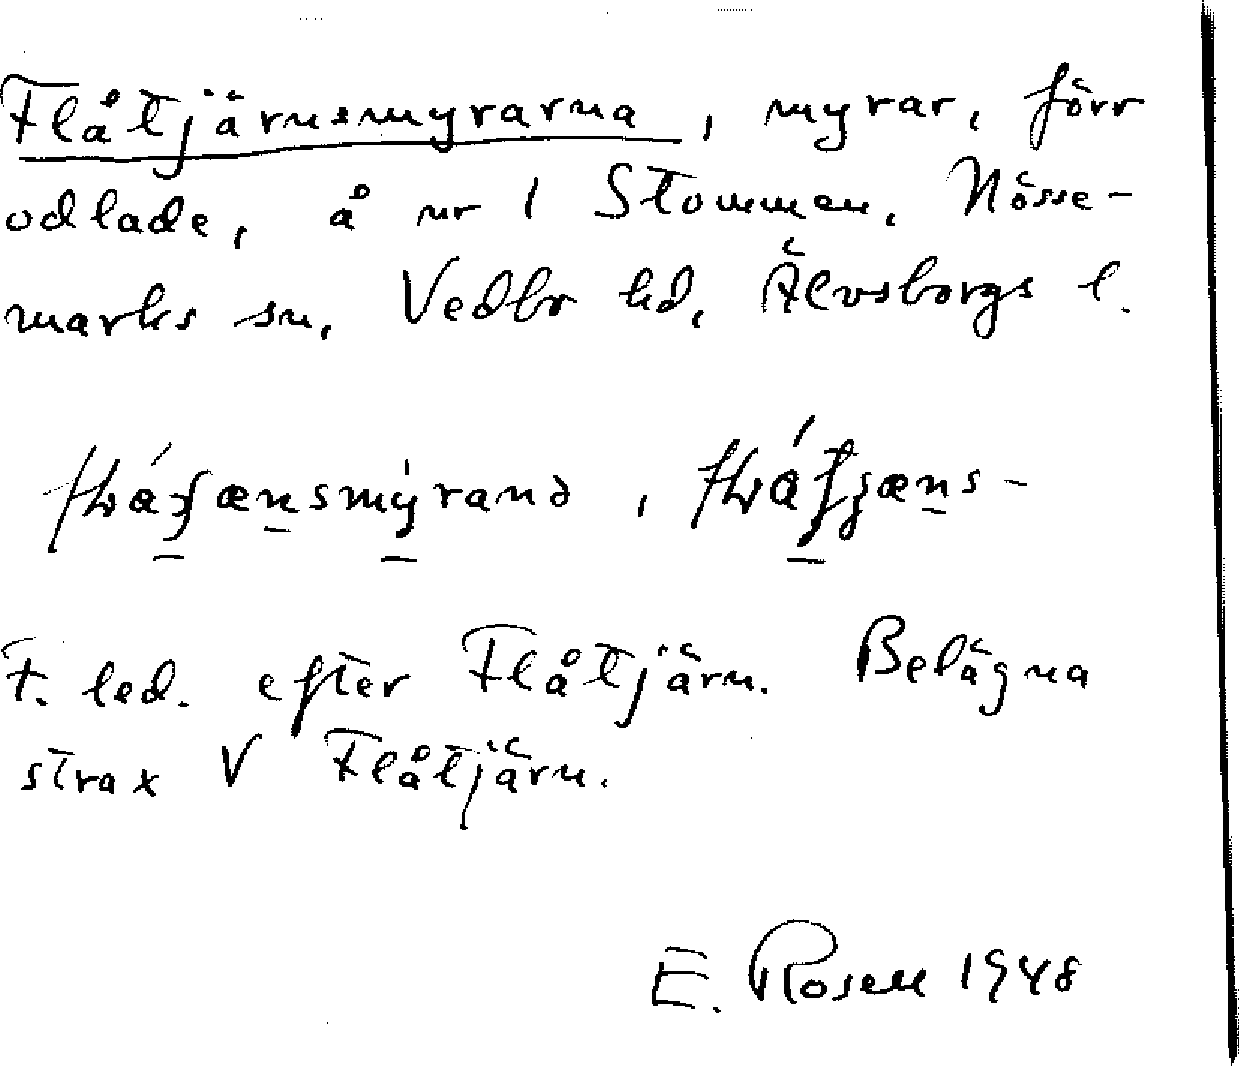 Flåtjärnsmyrarna, myrar, förr
odlade, å nr 1 Stommen, Nösse-
marks sn, Vedbo hd, Älvsborgs l.
F. led. efter Flåtjärn. Belägna
strax V Flåtjärn.
E. Rosell 1948